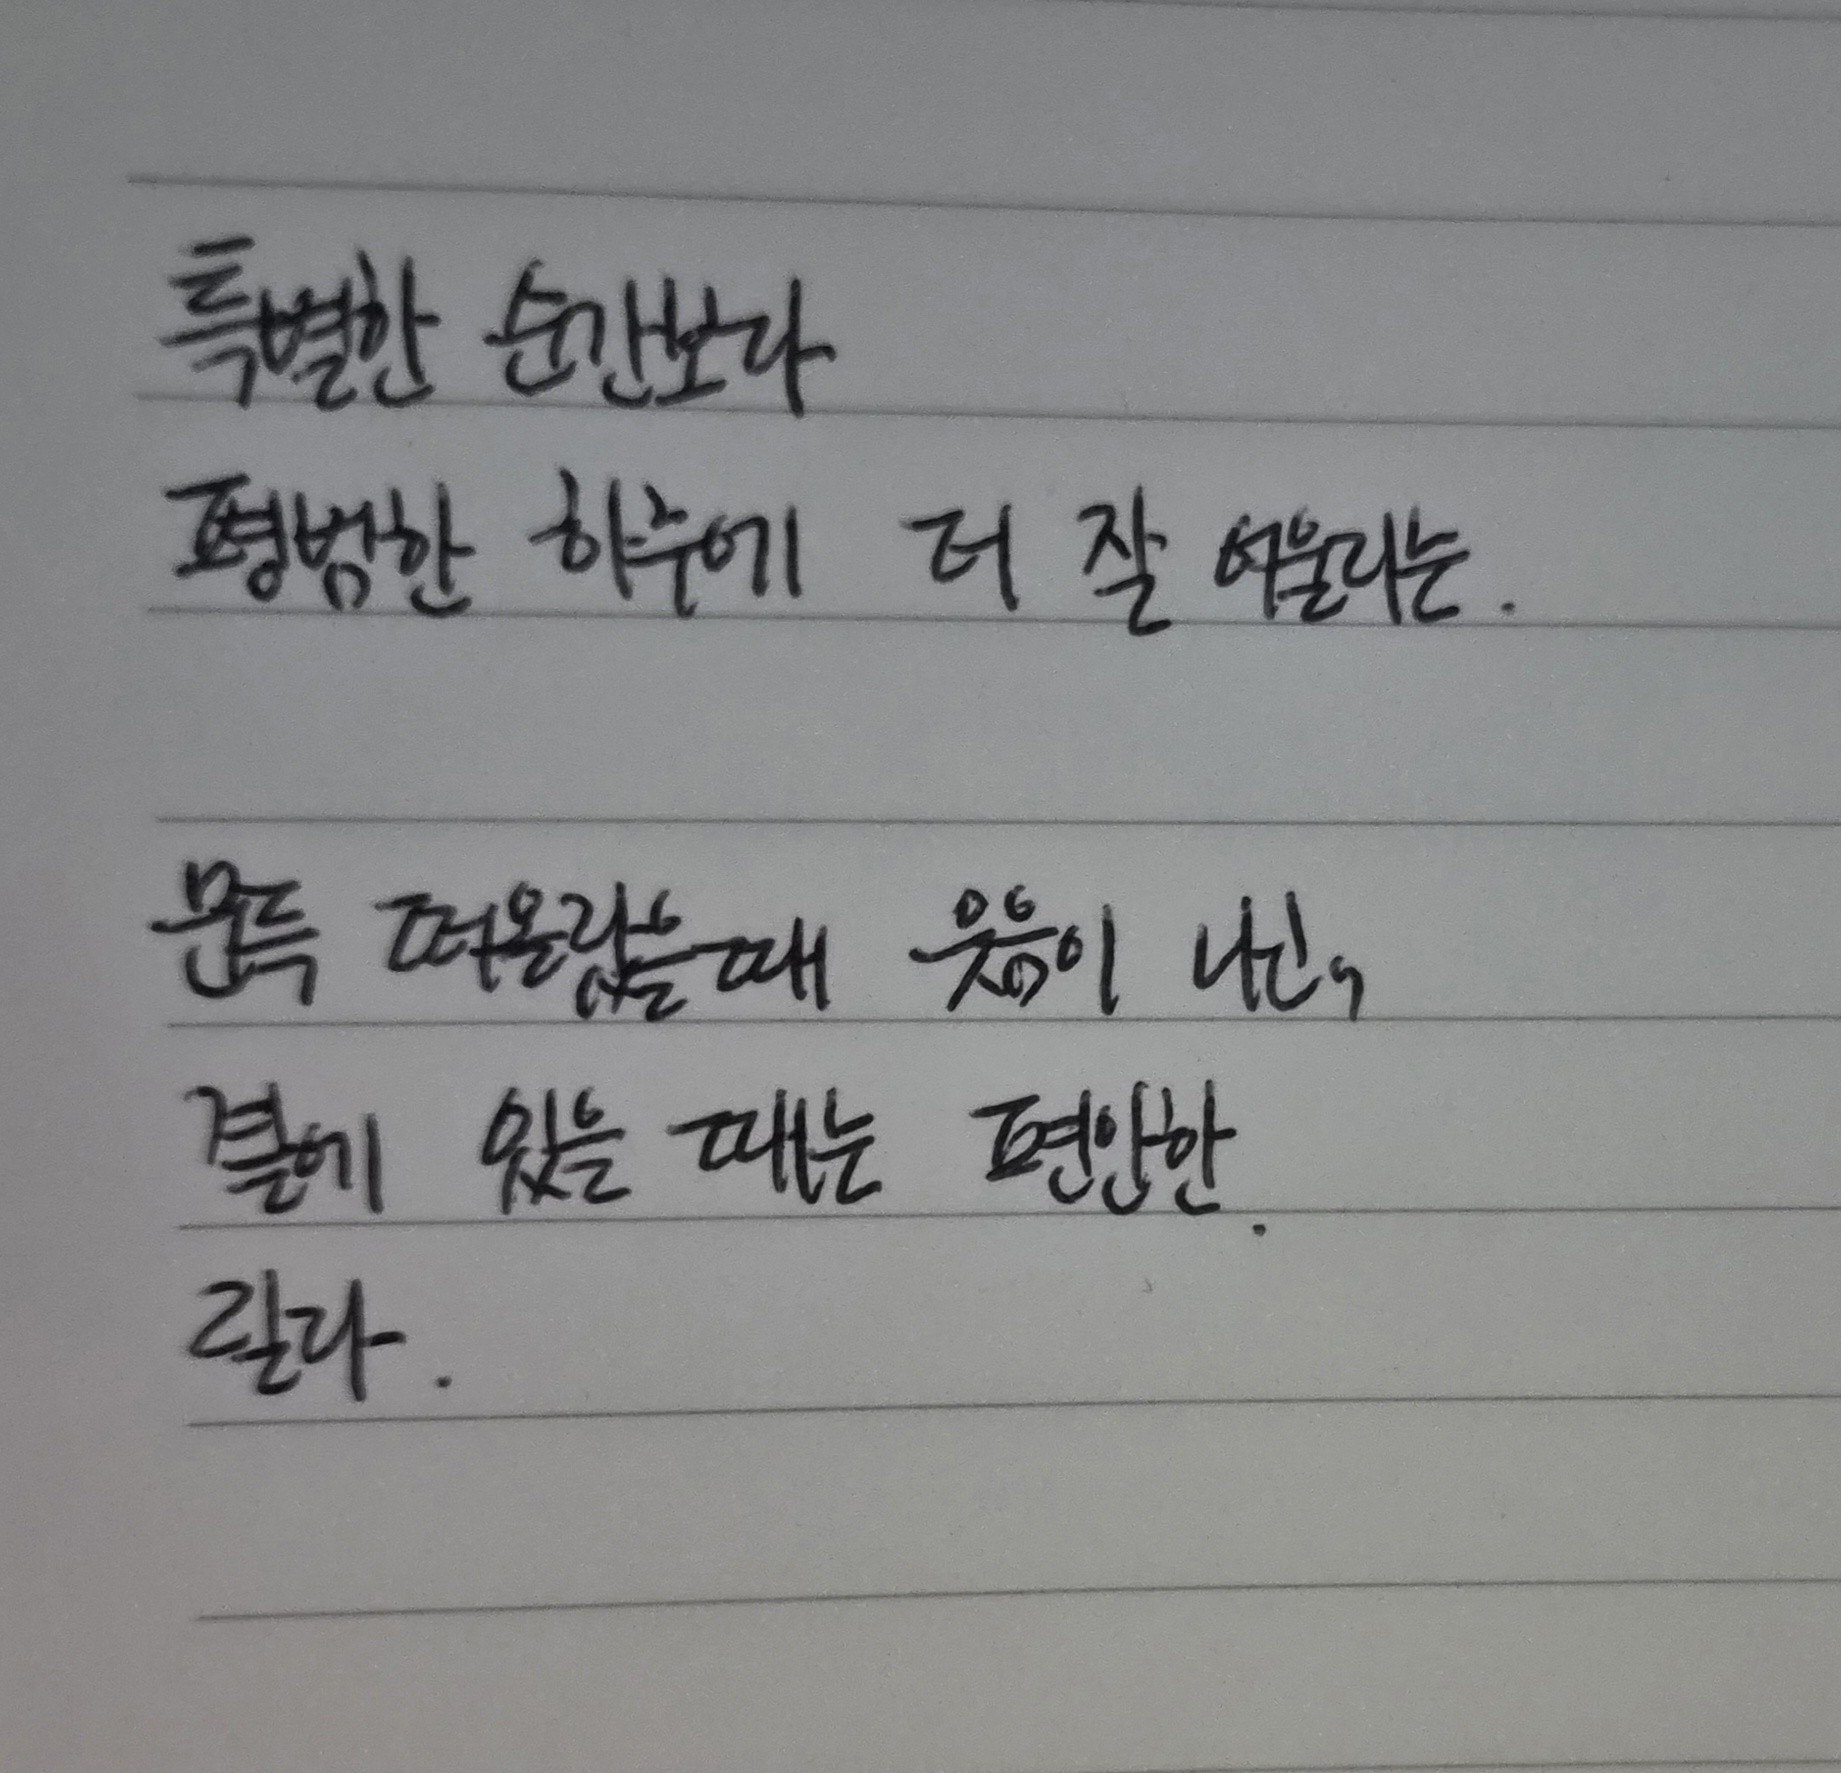 특별한 순간보다
평범한 하루에 더 잘 어울리는.
문득 떠올랐을때 웃음이 나는,
곁에 있을 때는 편안한.